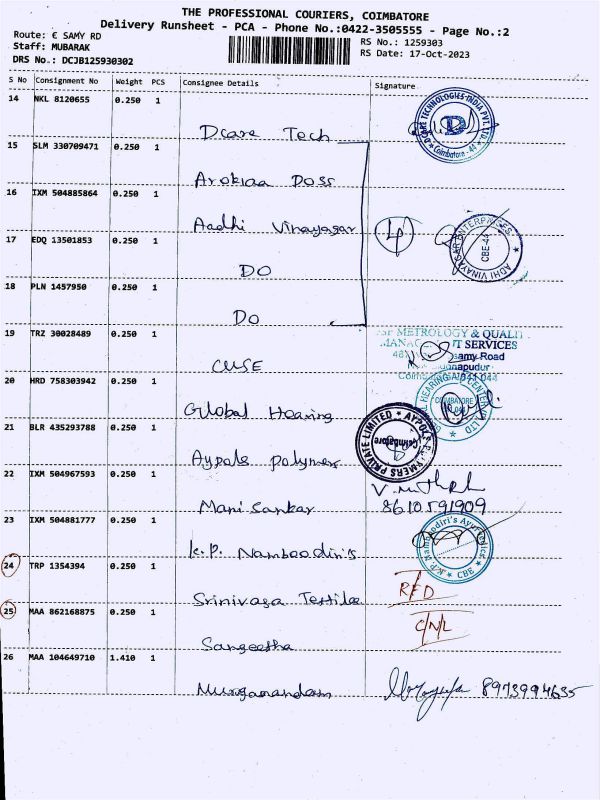 THE PROFESSIONAL COURIERS, COIMBATORE
Delivery Runsheet - PCA - Phone No.:0422-3505555 - Page No.:2
Route: € SAMY RD
Staff: MUBARAK
DRS No.: DCJB125930302
RS No.: 1259303
RS Date: 17-Oct-2023
S No Consignment No Weight PCS Consignee Details Signature
14 NKL 8120655 0.250 1
Dcare Tech
DCARE TECHNOLOGIES INDIA PVT. LTD
Coimbatore - 44
15 SLM 330709471 0.250 1
Arokiaa Doss
16 IXM 504885864 0.250 1
Aadhi Vinayagar
ADHI VINAYAGAR ENTERPRICES
CBE-44
17 EDQ 13501853 0.250 1
DO
18 PLN 1457950 0.250 1
DO
19 TRZ 30028489 0.250 1
CUSE
METROLOGY & QUALIT
IT SERVICES
samy Road
20 HRD 758303942 0.250 1
Global Hearing
HEARING AID CENTER
COIMBATORE
21 BLR 435293788 0.250 1
Aypols polymer
AYPOLS POLYMERS PRIVATE LIMITED
Coimbatore
22 IXM 504967593 0.250 1
Mani Sankar
8610591909
23 IXM 504881777 0.250 1
K.P. Namboodiri's
K.P. Namboodiri's Ayurvedics
CBE
24 TRP 1354394 0.250 1
Srinivasa Textile
RFD
25 MAA 862168875 0.250 1
Sangeetha
C/N/L
26 MAA 104649710 1.410 1
Muruganandam
8973994635